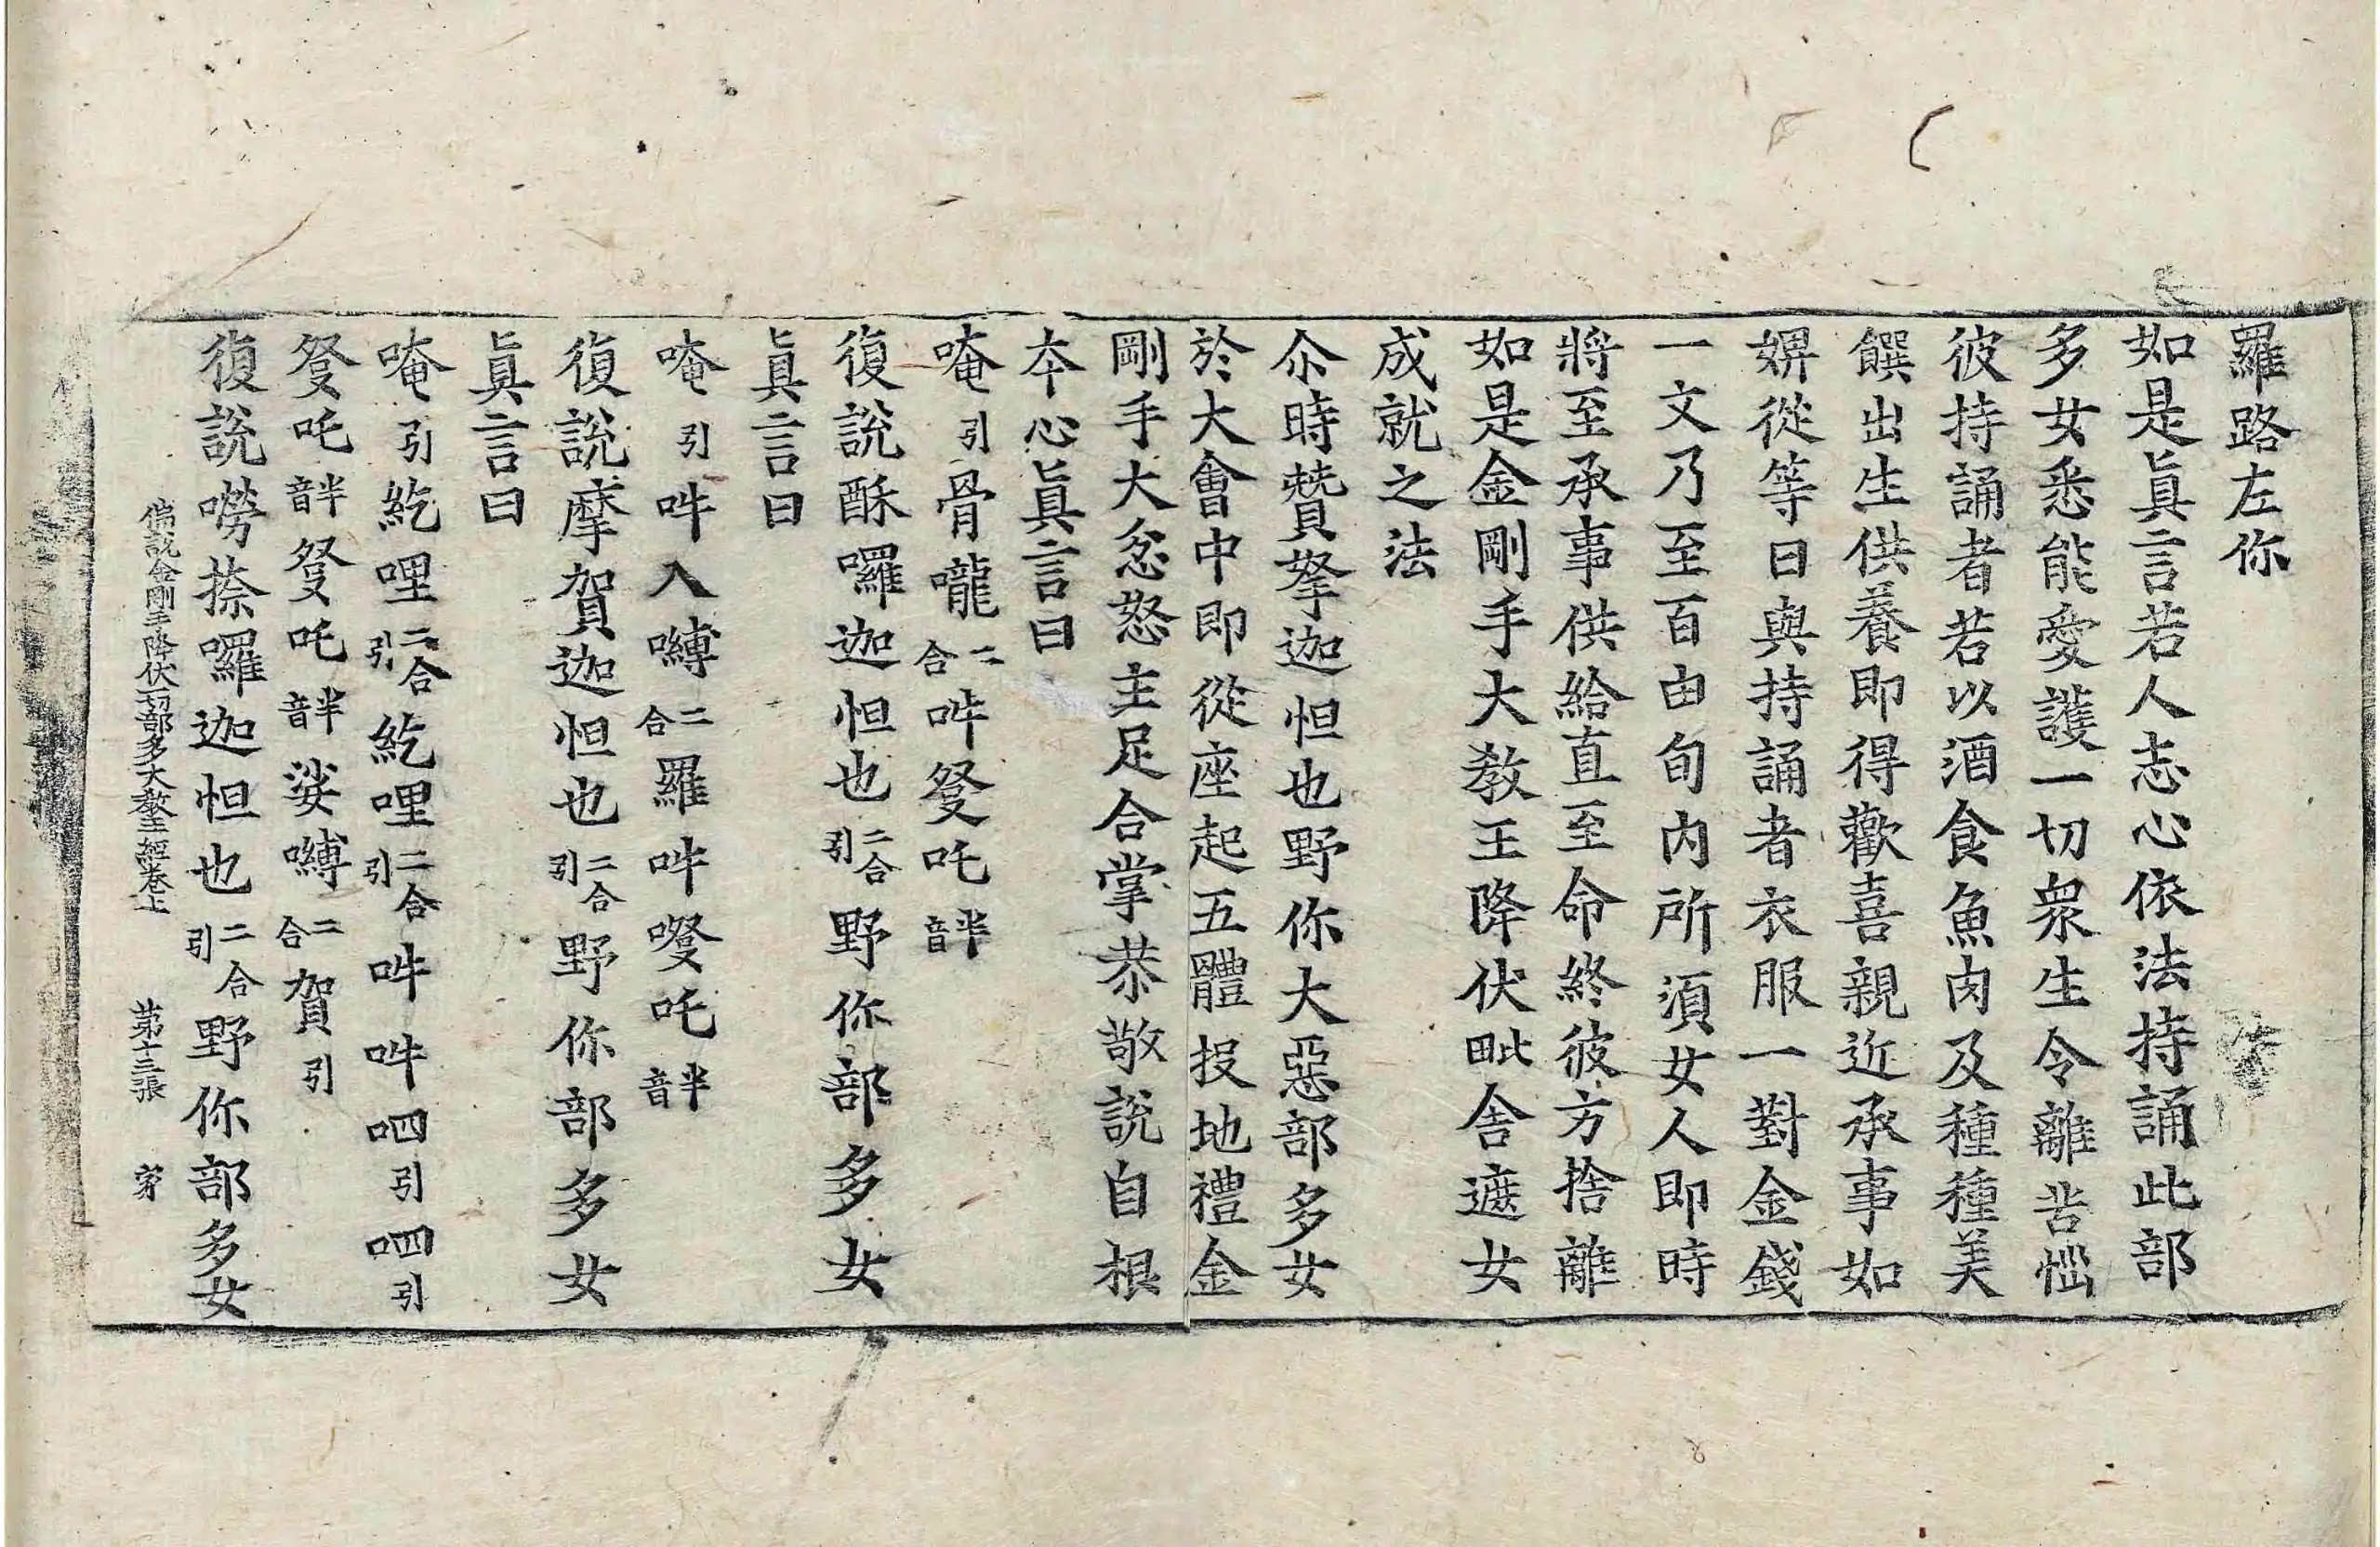 羅路左你
如是眞言若人志心依法持誦此部
多女悉能愛護一切衆生令離苦惱
彼持誦者若以酒食魚肉及種種美
饌出生供養即得歡喜親近承事如
婢從等日與持誦者衣服一對金錢
一文乃至百由旬内所須女人即時
將至承事供給直至命終彼方捨離
如是金剛手大教王降伏毗舎遮女
成就之法
尒時贊拏迦怛也野你大惡部多女
於大會中即從座起五體投地禮金
剛手大忿怒主足合掌恭敬說自根
本心眞言曰
唵引骨嚨二合吽發吒半音
復說酥囉迦怛也二合引野你部多女
眞言曰
唵引吽入嚩二合羅吽發吒半音
復說摩賀迦怛也二合引野你部多女
眞言曰
唵引紇哩二合引紇哩二合引吽吽呬引呬引
發吒半音發吒半音娑嚩二合賀引
復說嘮捺囉迦怛也二合引野你部多女
佛說金剛手降伏一切部多大敎王經卷上 第十三張